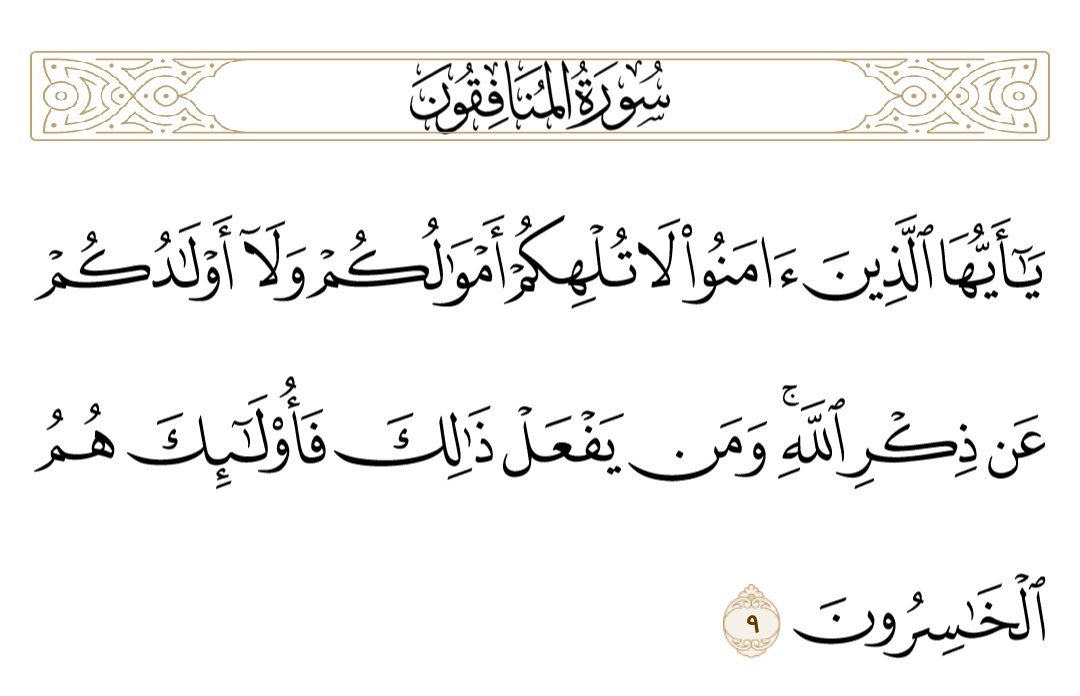 سُورَةُ المُنَافِقُونَ
يَـٰٓأَيُّهَا ٱلَّذِينَ ءَامَنُوا۟ لَا تُلْهِكُمْ أَمْوَٰلُكُمْ وَلَآ أَوْلَـٰدُكُمْ
عَن ذِكْرِ ٱللَّهِ ۚ وَمَن يَفْعَلْ ذَٰلِكَ فَأُو۟لَـٰٓئِكَ هُمُ
ٱلْخَـٰسِرُونَ ٩